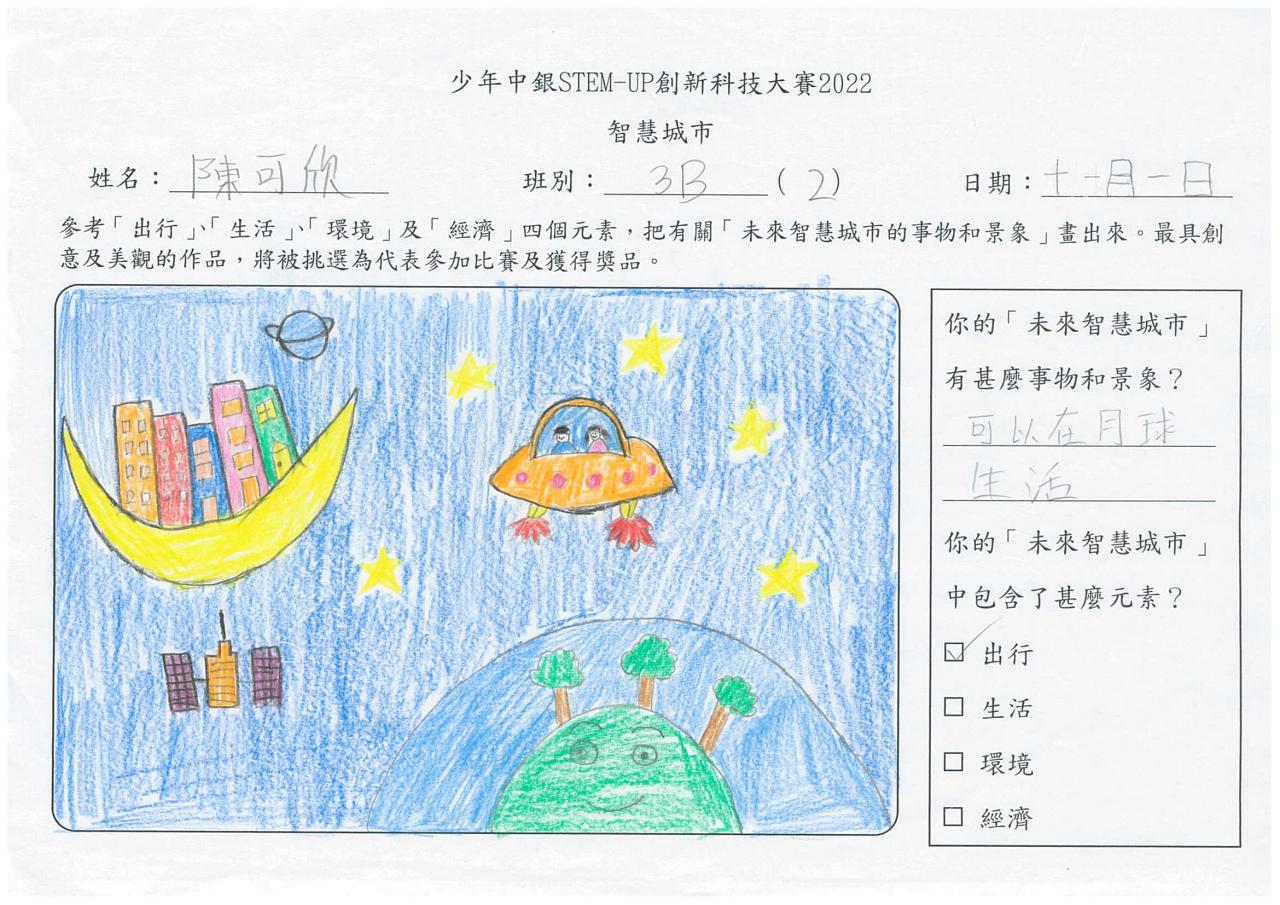 少年中銀STEM-UP創新科技大賽2022
智慧城市
姓名：陳可欣 班別：3B (2) 日期：十一月一日
參考「出行」、「生活」、「環境」及「經濟」四個元素，把有關「未來智慧城市的事物和景象」畫出來。最具創
意及美觀的作品，將被挑選為代表參加比賽及獲得獎品。
你的「未來智慧城市」
有甚麼事物和景象？
可以在月球
生活
你的「未來智慧城市」
中包含了甚麼元素？
☑ 出行
☐ 生活
☐ 環境
☐ 經濟